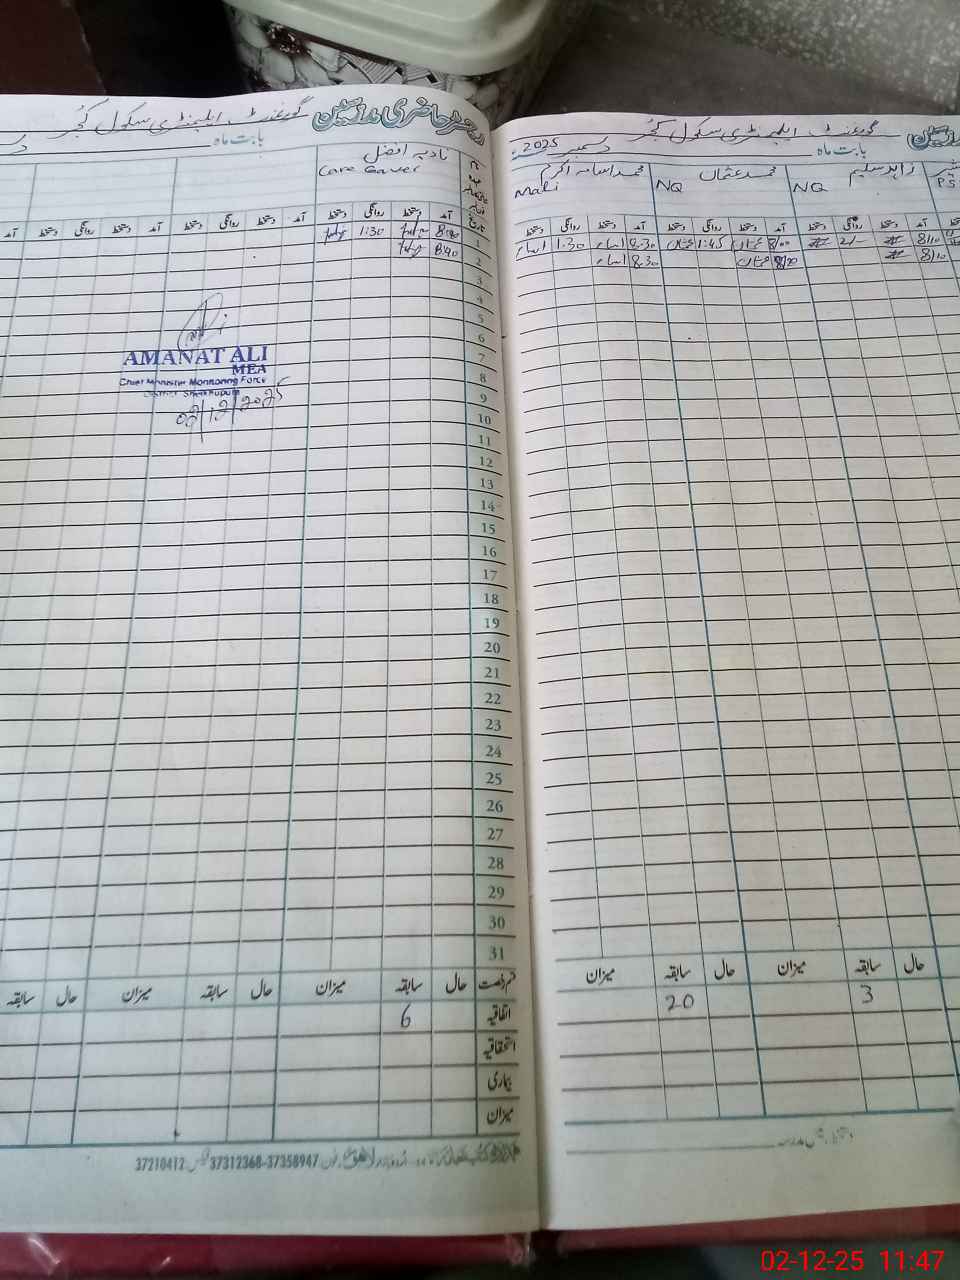 گورنمنٹ ایلیمنٹری سکول کجر
دسمبر 2025ء
بابت ماہ
زاہد سلیم
محمد عثمان
محمد اسامہ اکرم
NQ
NQ
Mali
PS
آمد دستخط روانگی دستخط آمد دستخط روانگی دستخط آمد دستخط روانگی دستخط
8/10 2/- 8/00 عثمان 1:45 عثمان 8:30 اسامہ 1:30 اسامہ
8/10 8/00 عثمان 8:30 اسامہ
حال سابقہ میزان حال سابقہ میزان
3 20
رجسٹر حاضری مدرسین گورنمنٹ ایلیمنٹری سکول کجر
بابت ماہ
نادیہ افضل
Care Gaver
تاریخ آمد دستخط روانگی دستخط آمد دستخط روانگی دستخط آمد دستخط روانگی دستخط آمد
1 1:30
2 8:40
3
4
5
6
7
8
9
10
11
12
13
14
15
16
17
18
19
20
21
22
23
24
25
26
27
28
29
30
31
AMANAT ALI
MEA
Chief Minister Monitoring Force
District Sheikhupura
02/12/2025
قسم رخصت حال سابقہ میزان حال سابقہ میزان حال سابقہ
اتفاقیہ 6
استحقاقیہ
بیماری
میزان
37210412 37312368-37358947
02-12-25 11:47